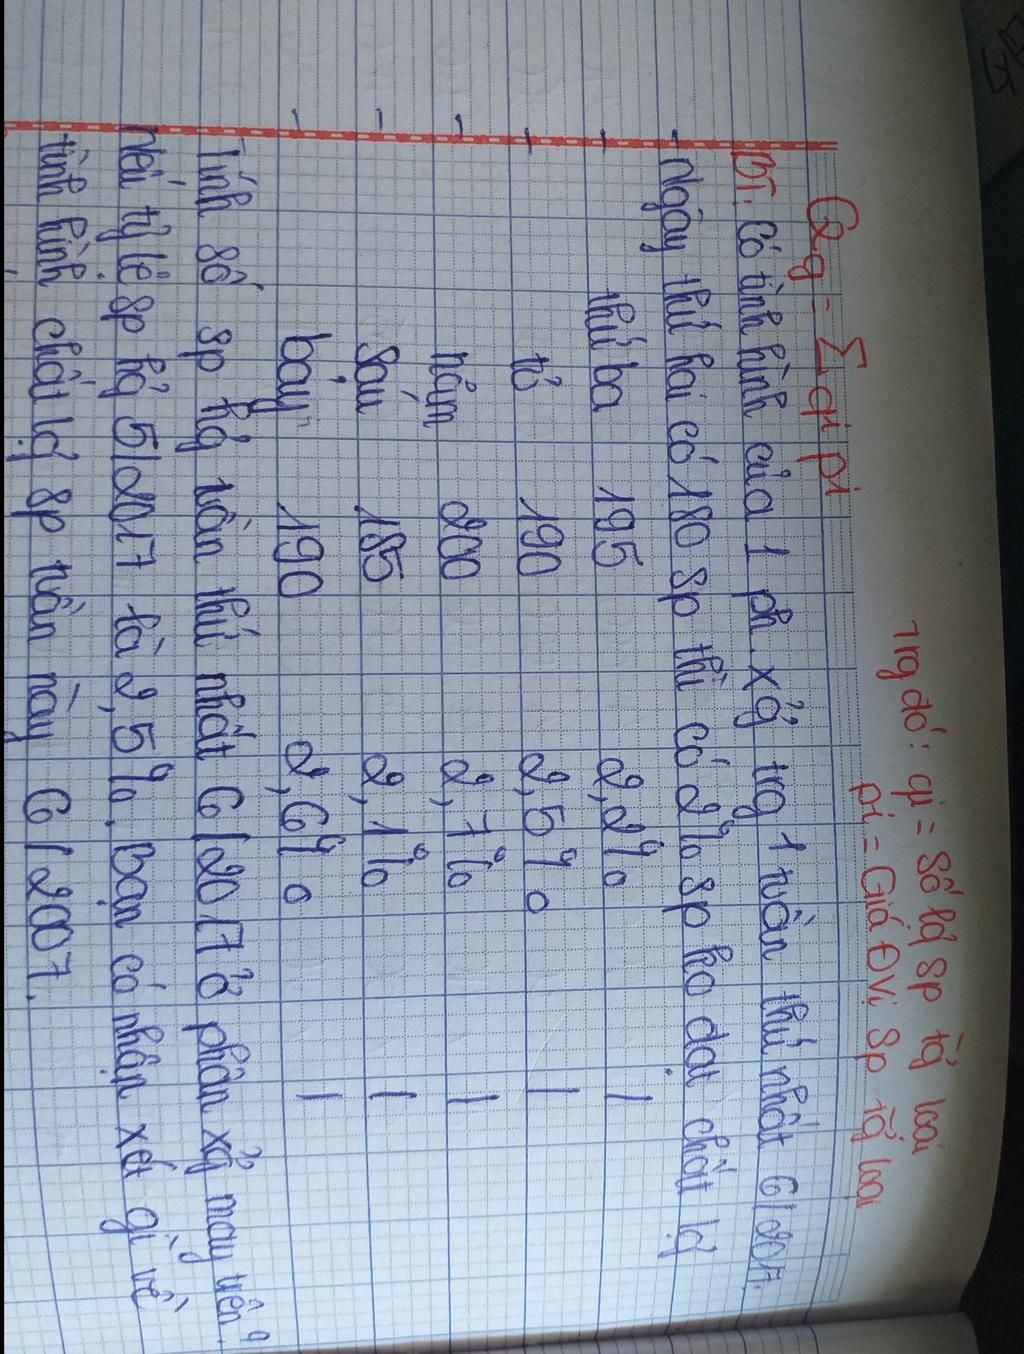 Trg đó: qi = Số lg Sp từg loại
pi = Giá ĐVị Sp từg loại
Qg = Σ qi pi
BT: Có tình hình của 1 ph.xởg trg 1 tuần thứ nhất 6/2017.
- Ngày thứ hai có 180 sp thì có 2% sp ko đạt chất lg
- thứ ba 195 2,2% |
- tư 190 2,5% |
- năm 200 2,7% |
- sáu 185 2,1% |
- bảy 190 2,6% |
Tính số sp hg tuần thứ nhất 6/2017 ở phân xởg may trên.
Nếu tỷ lệ sp hg 5/2017 là 2,5%. Bạn có nhận xét gì về
tình hình chất lg sp tuần này 6/2007.